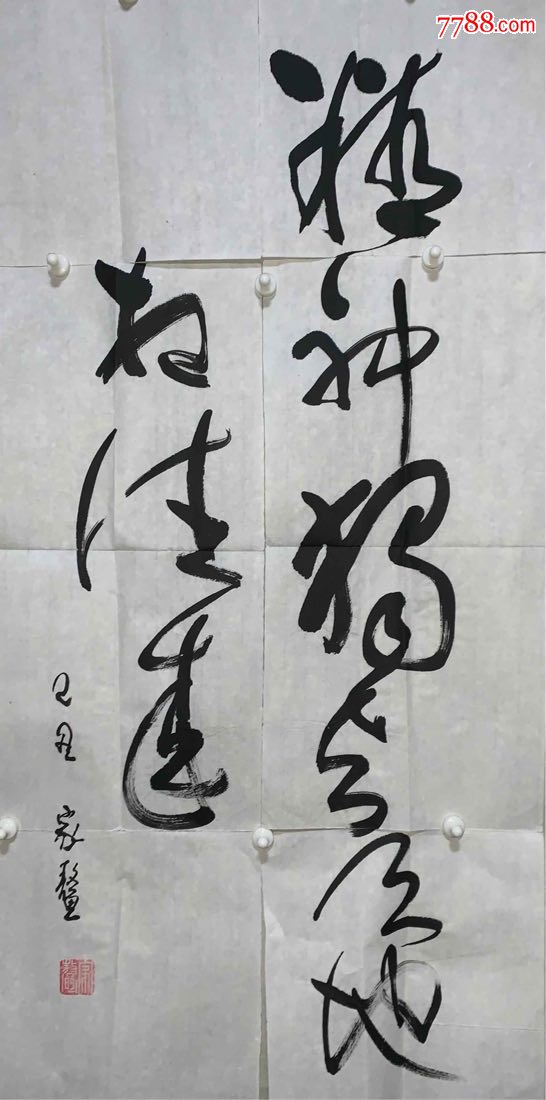 7788.com
精神獨与天地
相往来
己丑 家鰲